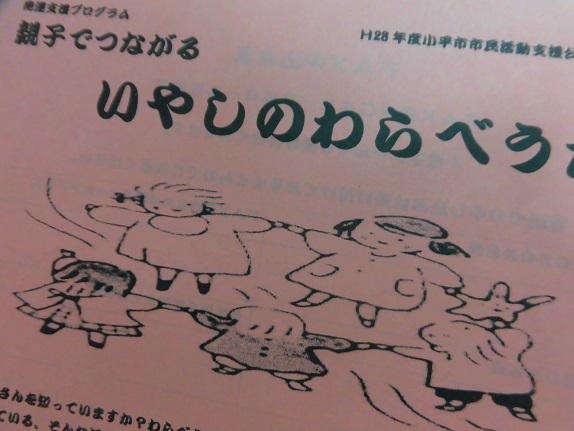 発達支援プログラム
親子でつながる
H28年度小平市市民活動支援公
いやしのわらべう
さんを知っていますか?わらべ
ている、そんな